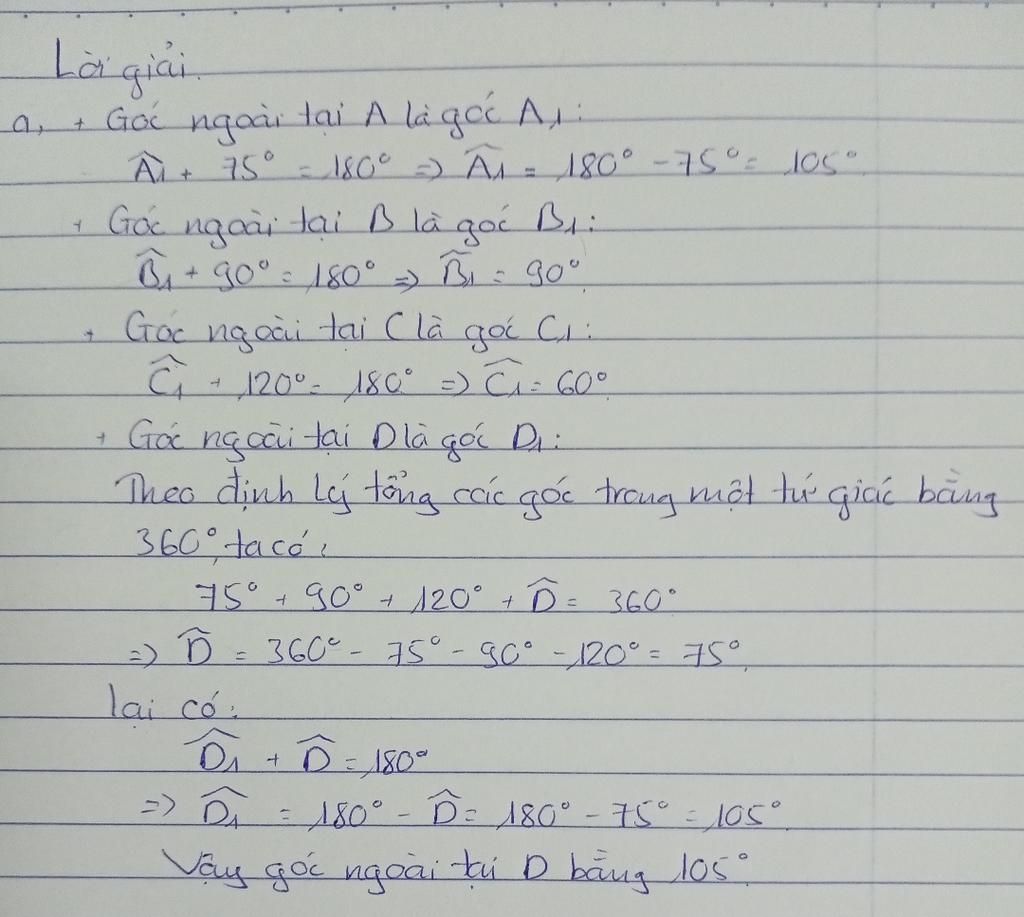 Lời giải.
a, + Góc ngoài tại A là góc A1:
Â1 + 75° = 180° => Â1 = 180° - 75° = 105°
+ Góc ngoài tại B là góc B1:
B̂1 + 90° = 180° => B̂1 = 90°
+ Góc ngoài tại C là góc C1:
Ĉ1 + 120° = 180° => Ĉ1 = 60°
+ Góc ngoài tại D là góc D1:
Theo định lý tổng các góc trong một tứ giác bằng
360°, ta có:
75° + 90° + 120° + D̂ = 360°
=> D̂ = 360° - 75° - 90° - 120° = 75°
lại có:
D̂1 + D̂ = 180°
=> D̂1 = 180° - D̂ = 180° - 75° = 105°
Vậy góc ngoài tại D bằng 105°